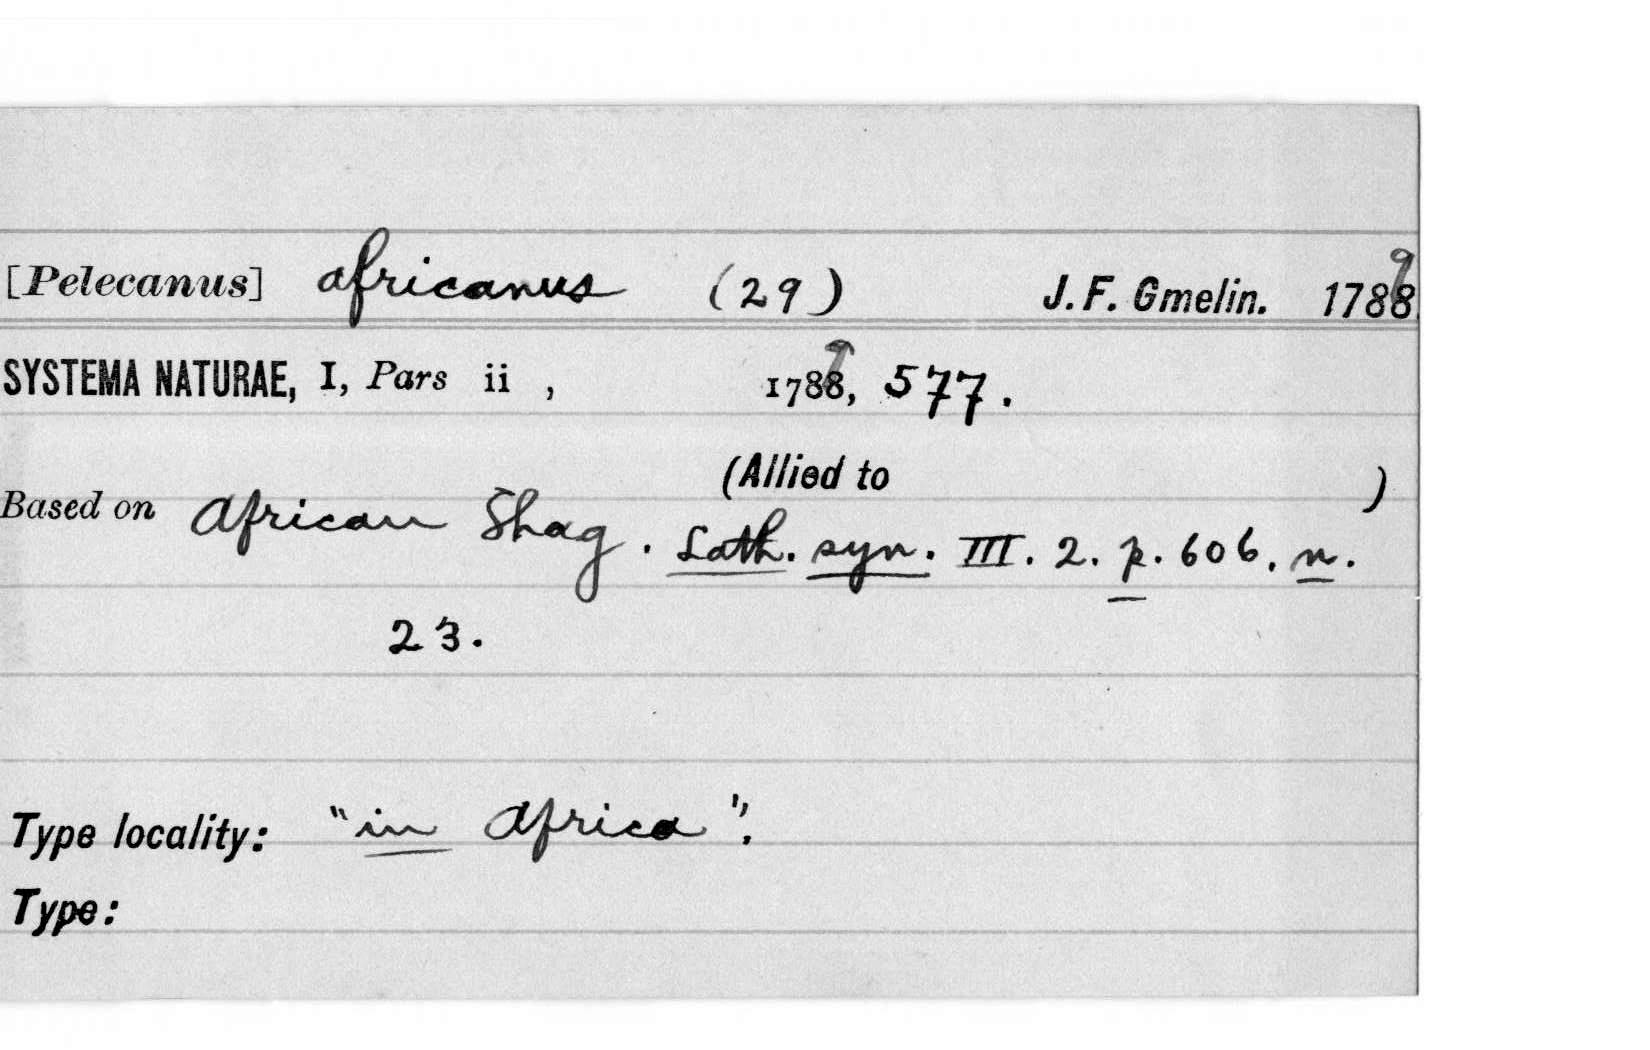 [Pelecanus] africanus (29) J. F. Gmelin. 1789
SYSTEMA NATURAE, I, Pars ii , 1789, 577.
(Allied to )
Based on African Shag. Lath. syn. III. 2. p. 606. n.
23.
Type locality: "in Africa".
Type: